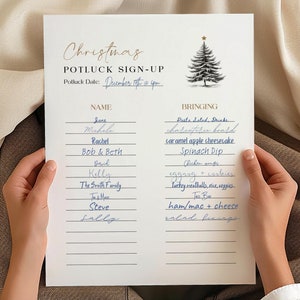 Christmas
POTLUCK SIGN-UP
Potluck Date: December 19th @ 6pm
NAME BRINGING
Jane Pasta Salad, Drinks
Michele charcuterie board
Rachel caramel apple cheesecake
Bob & Beth Spinach Dip
David Chicken wings
Kelly eggnog + cookies
The Smith Family turkey meatballs, rice, veggies
Steve ham/mac + cheese
salad